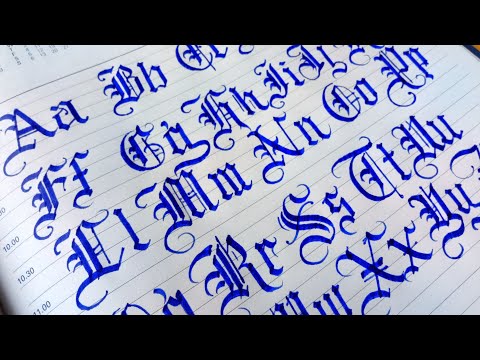 Aa Bb
Ff Gg Hh
10.00
Ll Mm Nn Oo Pp
10.30
Rr Ss Tt Uu
11.00
Xx Yy